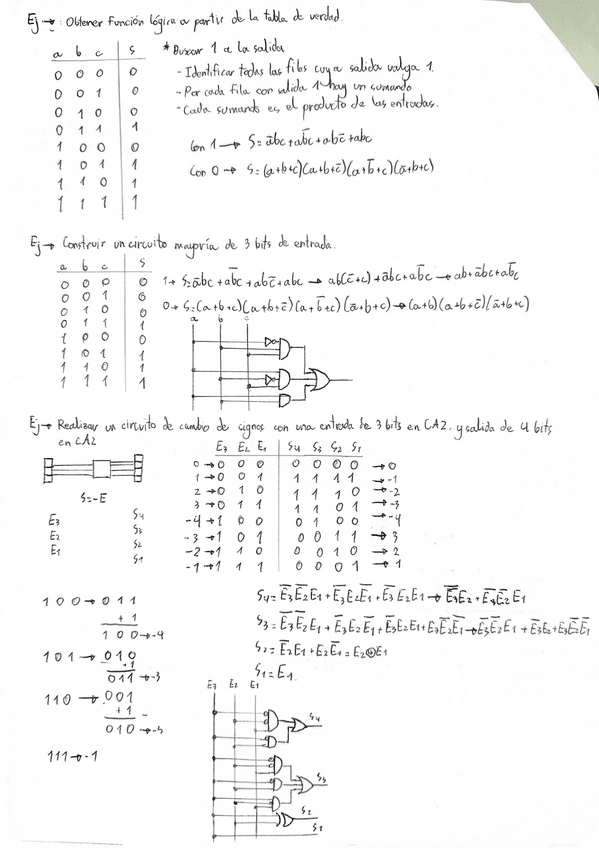 Ej→: Obtener función lógica a partir de la tabla de verdad.
a b c S
0 0 0 0
0 0 1 0
0 1 0 0
0 1 1 1
1 0 0 0
1 0 1 1
1 1 0 1
1 1 1 1
* Buscar 1 a la salida
- Identificar todas las filas cuya salida valga 1.
- Por cada fila con salida 1 hay un sumando
- Cada sumando es el producto de las entradas.
Con 1 → S= a̅bc + ab̅c + abc̅ + abc
Con 0 → S= (a+b+c)(a+b+c̅)(a+b̅+c)(a̅+b+c)
Ej→ Construir un circuito mayoría de 3 bits de entrada.
a b c S
0 0 0 0
0 0 1 0
0 1 0 0
0 1 1 1
1 0 0 0
1 0 1 1
1 1 0 1
1 1 1 1
1→ S= a̅bc + ab̅c + abc̅ + abc → ab(c̅+c) + a̅bc + ab̅c → ab + a̅bc + ab̅c
0→ S= (a+b+c)(a+b+c̅)(a+b̅+c)(a̅+b+c) → (a+b)(a+b+c̅)(a̅+b+c)
a b c
Ej→ Realizar un circuito de cambio de signos con una entrada de 3 bits en CA2, y salida de 4 bits
en CA2
S=-E
E3 S4
E2 S3
E1 S2
S1
E3 E2 E1 S4 S3 S2 S1
0→0 0 0 0 0 0 0 →0
1→0 0 1 1 1 1 1 →-1
2→0 1 0 1 1 1 0 →-2
3→0 1 1 1 1 0 1 →-3
-4→1 0 0 0 1 0 0 →-4
-3→1 0 1 0 0 1 1 →3
-2→1 1 0 0 0 1 0 →2
-1→1 1 1 0 0 0 1 →1
1 0 0 → 0 1 1
+ 1
1 0 0 →-4
1 0 1 → 0 1 0
+1
0 1 1 →-3
1 1 0 → 0 0 1
+1
0 1 0 →-3
1 1 1 →-1
S4= E̅3E̅2E1 + E̅3E2E̅1 + E̅3E2E1 → E̅3E2 + E̅3E̅2E1
S3= E̅3E̅2E1 + E̅3E2E̅1 + E̅3E2E1 + E3E̅2E̅1 → E̅3E̅2E1 + E̅3E2 + E3E̅2E̅1
S2= E̅2E1 + E2E̅1 = E2⊕E1
S1=E1.
E3 E2 E1
S4
S3
S2
S1